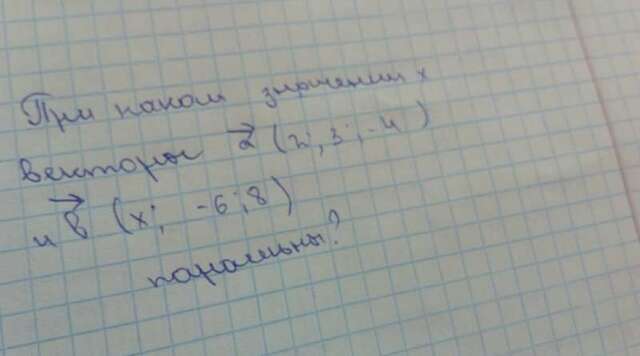 При каком значении x
векторы a (2; 3; -4)
и b (x; -6; 8)
паралельны?